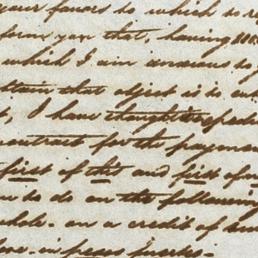 your favors to which to re
form you that, having
which I am anxious to
ttain that object is to en
t, I have thought it
contract for the paymen
first of this and first of
n to do on the following
whole - on a credit of